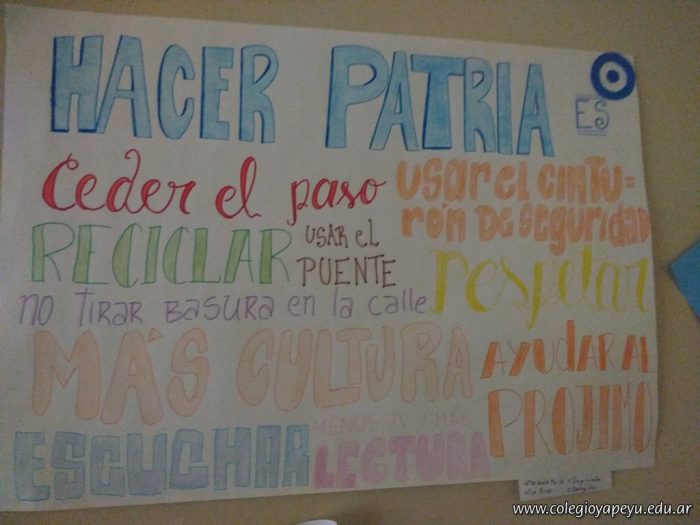 HACER PATRIA
ES
Ceder el paso
USAR EL CINTU=
RÓN DE SEGURIDAD
RECICLAR
USAR EL
PUENTE
respetar
NO TIRAR BASURA en la calle
MÁS CULTURA
AYUDAR AL
PROJIMO
ESCUCHAR
MENOS TV Y MÁS
LECTURA
www.colegioyapeyu.edu.ar